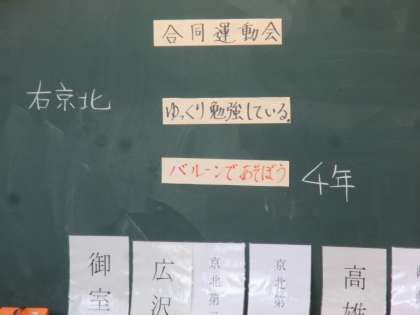 合同運動会
右京北
ゆっくり勉強している。
バルーンであそぼう
4年
御室
広沢
京北第一
京北第
高雄